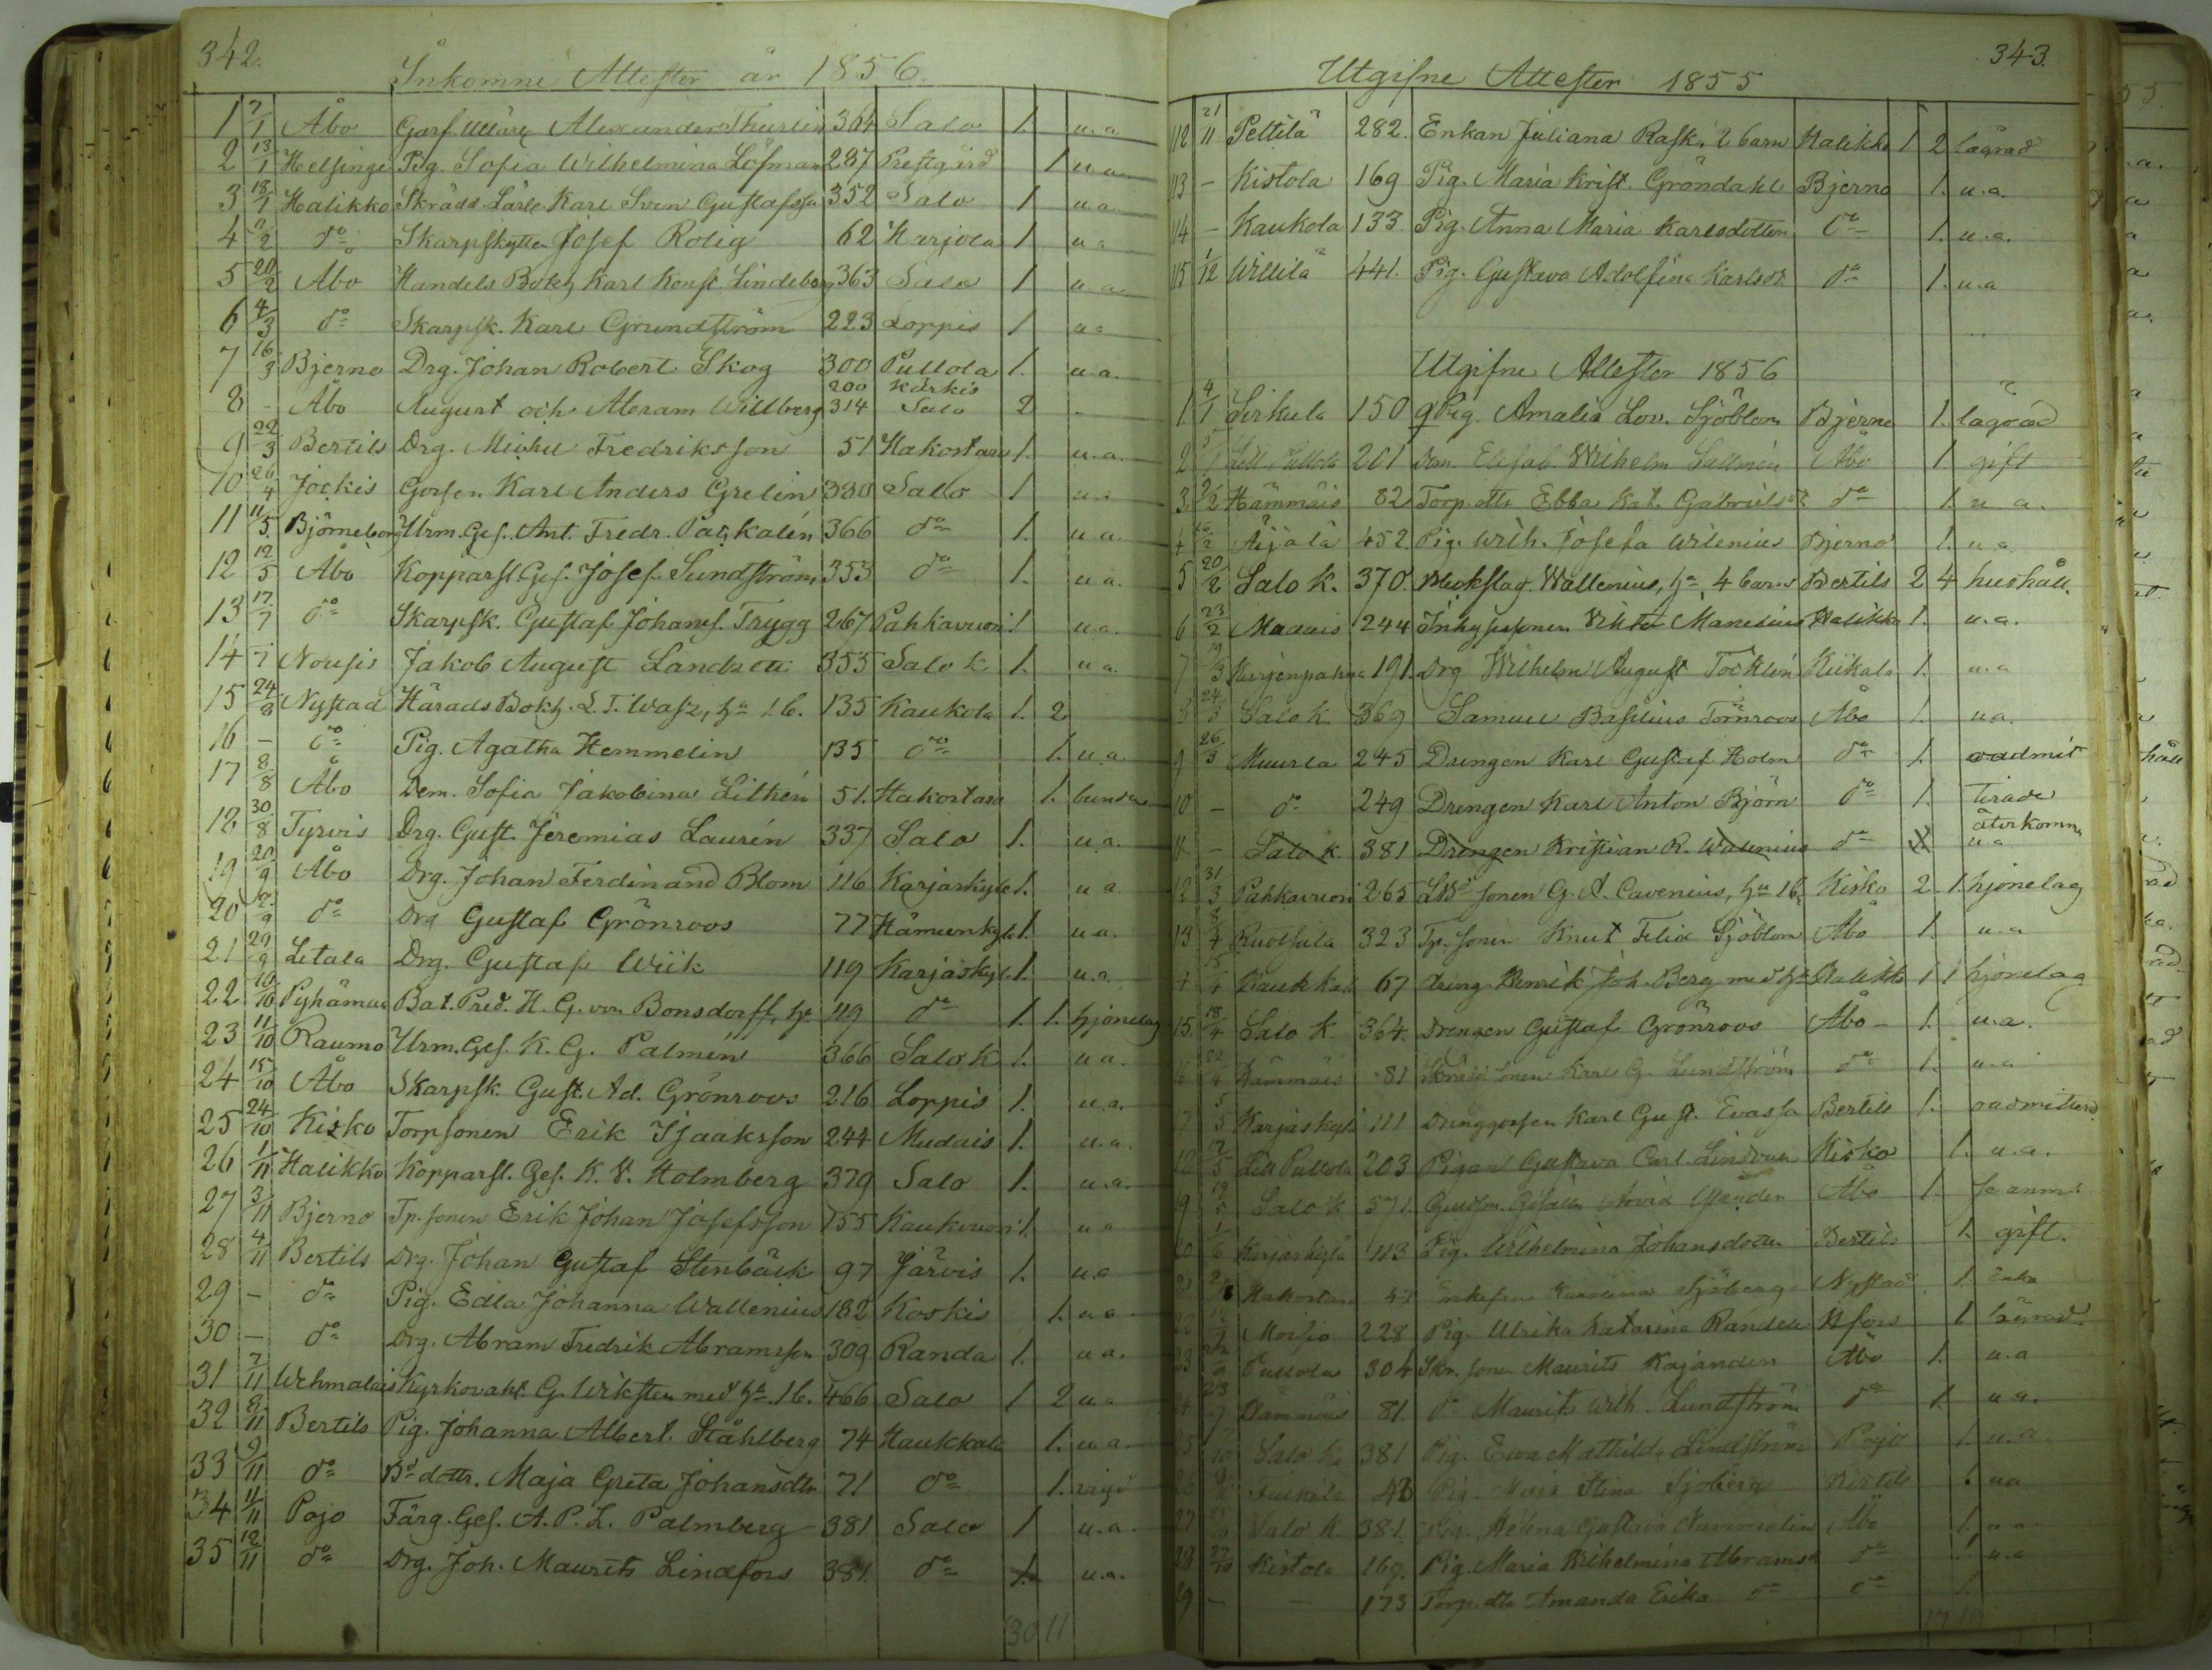 342.
Inkomne Attester år 1856.
1 7/1 Åbo Garf. Alexander Thurlin 364 Salo 1. u.a
2 13/1 Helsinge Pig. Sofia Wilhelmina Löfman 287 Prestgård 1 u.a
3 18/1 Halikko Skrädd. Lärl. Karl Sven Gustafsson 352 Salo 1 u a
4 /2 do Skarpskytten Josef Rolig 62 Karjola 1 u a
5 20/2 Åbo Handels Bokh. Karl Konst. Lindeberg 363 Salo 1 u.a.
6 4/3 do Skarpsk. Karl Grundström 223 Loppis 1 u a
7 16/3 Bjerno Drg. Johan Robert Skog 300 Pullola 1. u.a.
200 Kärkis
8 - Åbo August och Abram Willberg 314 Salo 2 -
9 22/3 Bertils Drg. Michel Fredriksson 51 Hakostaro 1. u.a.
10 26/4 Jockis Gossen Karl Anders Grelin 330 Salo 1 u.a
11 11/5. Björneborg Urm. Ges. Ant. Fredr. Paskalén 366 do 1. u a.
12 12/5 Åbo Kopparsl. Ges. Josef Sundström 353 do 1. u.a.
13 17/7 do Skarpsk. Gustaf Johans. Trygg 267 Pahkavuori 1 u.a.
14 -/7 Nousis Jakob August Landzett 355 Salo k 1. u a.
15 24/8 Nystad Härads Bokh. L. T. Wasz, hu 1 b. 135 Kaukola 1. 2
16 - do Pig. Agatha Hemmelin 135 do 1. u.a.
17 8/8 Åbo Dem. Sofia Jakobina Lithén 51. Hakostaro 1.
18 30/8 Tyrvis Drg. Gust. Jeremias Laurén 337 Salo 1. u.a.
19 20/9 Åbo Drg. Johan Ferdinand Blom 116 Karjaskylä 1. u a
20 /9 do Drg Gustaf Grönroos 77 Hämeenkylä 1. u a.
21 29/9 Letala Drg. Gustaf Wiik 119 Karjaskylä 1. u.a
22 10/10 Pyhämaa Bat. Pred. H. G. von Bonsdorff, hu 119 do 1. 1. hjonelag
23 11/10 Raumo Urm. Ges. K. G. Palmén 366 Salo k 1. u a.
24 15/10 Åbo Skarpsk. Gust. Ad. Grönroos 216 Loppis 1. u.a.
25 24/10 Kisko Torpsonen Erik Isaaksson 244 Mudais 1. u.a.
26 1/11 Halikko Kopparsl. Ges. K. V. Holmberg 379 Salo 1. u.a.
27 3/11 Bjerno Tp. sonen Erik Johan Josefsson 155 Kaukvuori 1. u a
28 4/11 Bertils Drg. Johan Gustaf Stenbäck 97 Järvis 1. u.a
29 - do Pig. Edla Johanna Wallenius 182 Koskis 1. u a
30 - do Drg. Abram Fredrik Abramsson 309 Randa 1. u a.
31 7/11 Wehmalais Kyrkovakt. G. Wiksten med hu 1 b. 466 Salo 1 2 u.a
32 8/11 Bertils Pig. Johanna Albert. Ståhlberg 74 Haukkala 1. u.a.
33 9/11 do Bd dottr. Maja Greta Johansdtr 71 do 1.
34 11/11 Pojo Färg. Ges. A. P. L. Palmberg 381 Salo 1 u.a.
35 12/11 do Drg. Joh. Maurits Lindfors 381. do 1. u.a.
30 11
343.
Utgifne Attester 1855
112 21/11 Pettilä 282. Enkan Juliana Rask, 2 barn Halikko 1 2 lägrad
113 - Kistola 169 Pig. Maria Krist. Gröndahl Bjerno 1. u.a.
114 - Kaukola 133 Pig. Anna Maria Karlsdotter do 1. u.a.
115 1/12 Willilä 441. Pig. Gustava Adolfina Karlsdr. do 1. u.a
Utgifne Attester 1856
1. 4/1 Sirkula 150 Pig. Amalia Lov. Sjöblom Bjerno 1. lägrad
2 5/1 Lill Pullola 201 Dem. Elisab. Wilhelm. Sallmén Åbo 1 gift
3 /2 Hämmäis 82 Torp. dtr Ebba Kat. Gabrielsd. do 1. u a.
4 /2 Äijälä 452 Pig. Wilh. Josefa Wilenius Bjerno 1. u a
5 20/2 Salo K. 370. Blekslag. Wallenius, hu, 4 barn Bertils 2 4 hushåll.
6 23/2 Mudais 244 Inhyssonen Viktor Manelius Halikko 1. u.a.
7 19/3 Kurjenpahna 191. Drg Wilhelm August Töcklin Kiikala 1. u.a
8 24/3 Salo K. 369 Samuel Basilius Törnroos Åbo 1. u a.
9 26/3 Muurla 245 Drengen Karl Gustaf Holm do 1. oadmit
10 - do 249 Drengen Karl Anton Björn do 1. terade
återkomna
- Salo k. 381 Drengen Kristian R. Wallenius do u a
12 31/3 Pahkavuori 265 sonen G. A. Cavenius, hu 1 b. Kisko 2. 1. hjonelag
13 8/4 Ruotsala 323 Tp. sonen Knut Felix Sjöblom Åbo 1. u.a
/4 67 Dreng Henrik Joh. Berg med hu Halikko 1 1 hjonelag
15. 18/4 Salo K 364. Drengen Gustaf Grönroos Åbo 1. u.a.
16 22/4 Hämmäis 81 Skrädd. sonen Karl G. Lundström do 1. u.a
17 5/5 Karjaskylä 111 Drenggossen Karl Gust. Evasso Bertils 1. oadmitterad
18 /5 Lill Pullola 203 Pigan Gustava Carl. Lindvall Kisko 1. u.a.
19 19/5 Salo K 371. Arvid Åbo 1. Se anm.
20 1/6 Karjaskylä 113 Pig. Wilhelmina Johansdotter Bertils 1. gift.
21 Hakostaro 51 Karolina Sjöberg Nystad 1. enka
22 12/ Moisio 228 Pig. Ulrika Katarina Randell Hfors 1 lägrad
23 Pullola 304 sonen Maurits Kajander Åbo 1. u.a
24 23/9 Hämmäis 81. do Maurits Wilh. Lundström do 1. u a.
25 /10 Salo K. 381 Pig. Ewa Mathilda Lindström Pojo 1. u.a.
26 43 Pig. Maja Stina Sjöberg Bertils u a
27 Salo K. 381. Pig. Helena Gustava Nummelin Åbo 1. u a
28 27/10 Kistola 169. Pig. Maria Wilhelmina Abramsd. do 1 u.a
29 - - 173 Torp. dtr Amanda Erika do do 1.
17 19